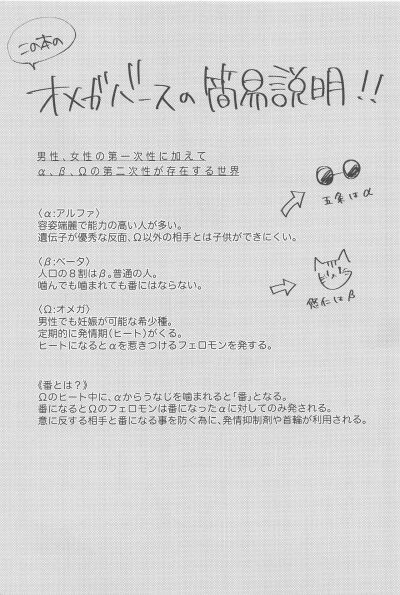 この本の
オメガバースの簡易説明!!
男性、女性の第一次性に加えて
α、β、Ωの第二次性が存在する世界
〈α:アルファ〉
容姿端麗で能力の高い人が多い。
遺伝子が優秀な反面、Ω以外の相手とは子供ができにくい。
五条はα
〈β:ベータ〉
人口の8割はβ。普通の人。
噛んでも噛まれても番にはならない。
悠仁はβ
〈Ω:オメガ〉
男性でも妊娠が可能な希少種。
定期的に発情期(ヒート)がくる。
ヒートになるとαを惹きつけるフェロモンを発する。
《番とは?》
Ωのヒート中に、αからうなじを噛まれると「番」となる。
番になるとΩのフェロモンは番になったαに対してのみ発される。
意に反する相手と番になる事を防ぐ為に、発情抑制剤や首輪が利用される。